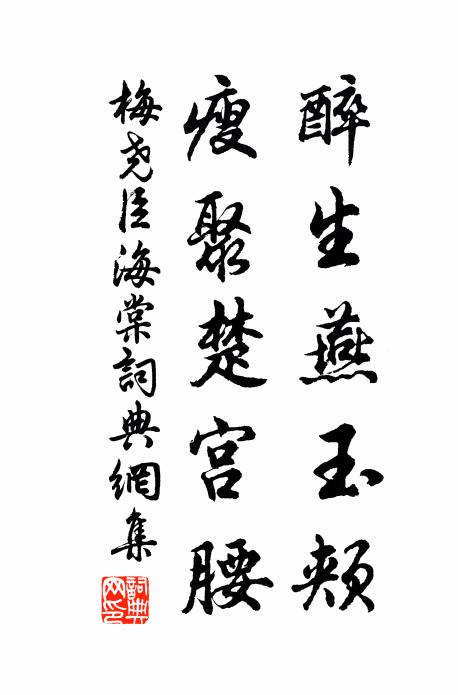 醉生燕玉頰
瘦聚楚宮腰
梅尧臣海棠詞典網集
詞典网印